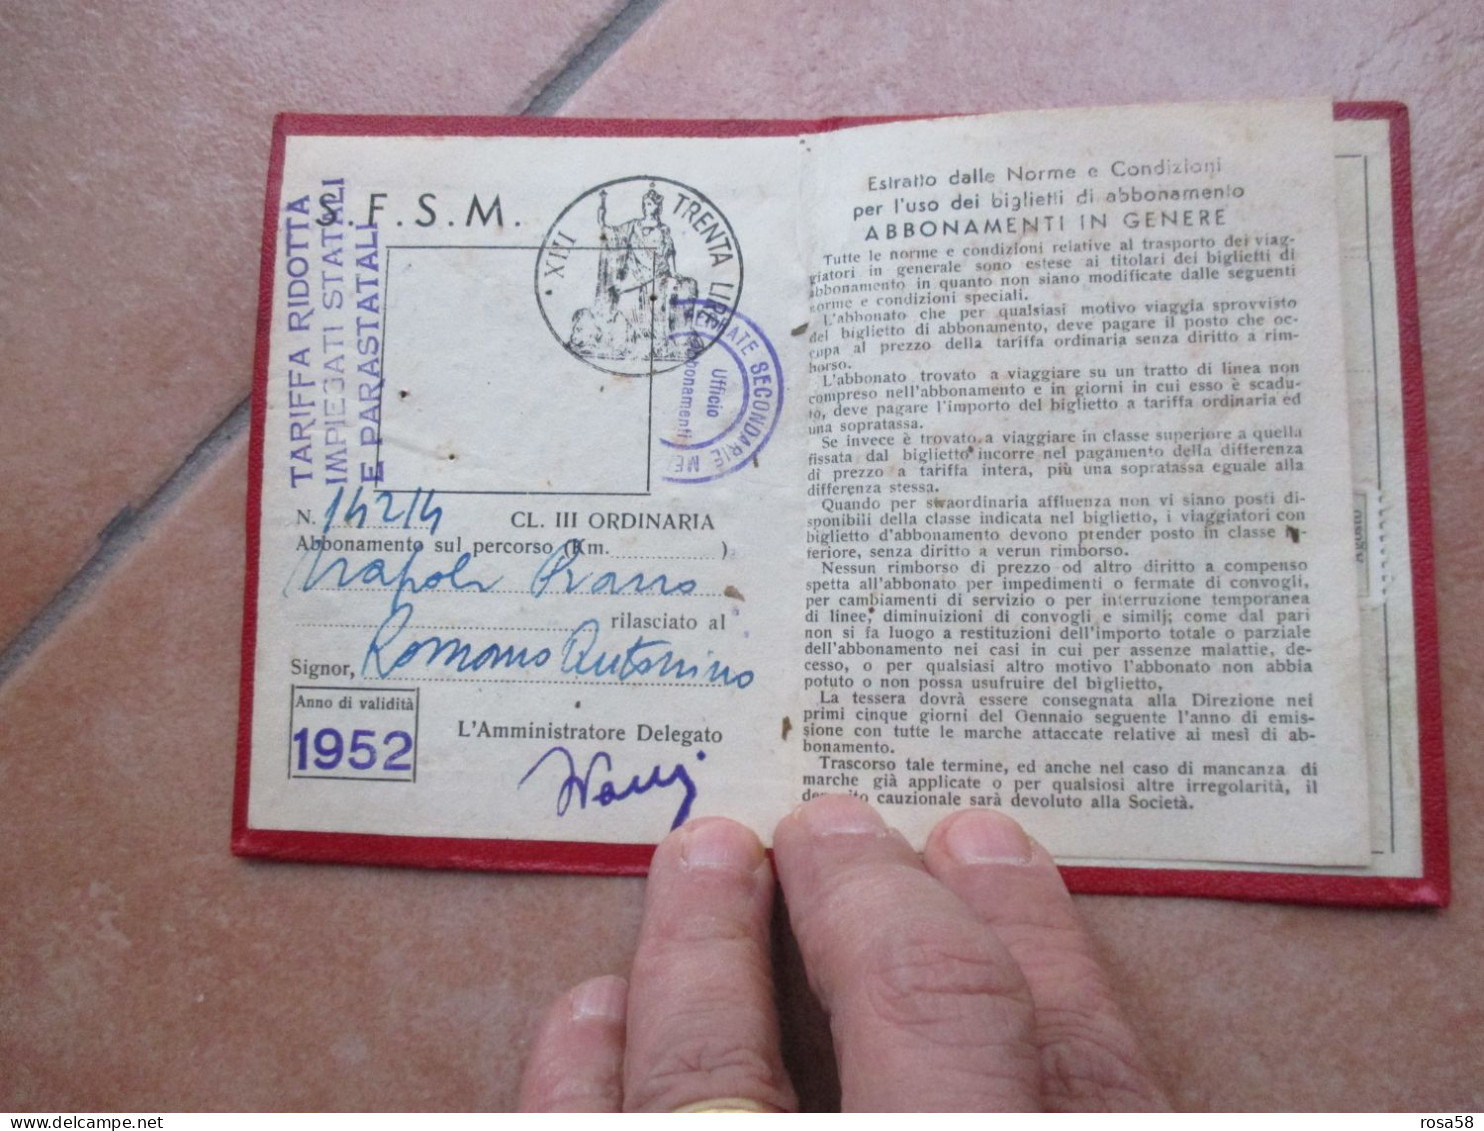 TARIFFA RIDOTTA
IMPIEGATI STATALI
E PARASTATALI
S.F.S.M.
XIII TRENTA LIRE
SECONDARIE
Ufficio
N. 14214 CL. III ORDINARIA
Abbonamento sul percorso (Km. )
Napoli
rilasciato al
Signor, Romano Antonino
Anno di validità
1952
L'Amministratore Delegato
Estratto dalle Norme e Condizioni
per l'uso dei biglietti di abbonamento
ABBONAMENTI IN GENERE
Tutte le norme e condizioni relative al trasporto dei viag-
giatori in generale sono estese ai titolari dei biglietti di
abbonamento in quanto non siano modificate dalle seguenti
norme e condizioni speciali.
L'abbonato che per qualsiasi motivo viaggia sprovvisto
del biglietto di abbonamento, deve pagare il posto che oc-
cupa al prezzo della tariffa ordinaria senza diritto a rim-
borso.
L'abbonato trovato a viaggiare su un tratto di linea non
compreso nell'abbonamento e in giorni in cui esso è scadu-
to, deve pagare l'importo del biglietto a tariffa ordinaria ed
una sopratassa.
Se invece è trovato a viaggiare in classe superiore a quella
fissata dal biglietto incorre nel pagamento della differenza
di prezzo a tariffa intera, più una sopratassa eguale alla
differenza stessa.
Quando per straordinaria affluenza non vi siano posti di-
sponibili della classe indicata nel biglietto, i viaggiatori con
biglietto d'abbonamento devono prender posto in classe in-
feriore, senza diritto a verun rimborso.
Nessun rimborso di prezzo od altro diritto a compenso
spetta all'abbonato per impedimenti o fermate di convogli,
per cambiamenti di servizio o per interruzione temporanea
di linee, diminuizioni di convogli e similj; come dal pari
non si fa luogo a restituzioni dell'importo totale o parziale
dell'abbonamento nei casi in cui per assenze malattie, de-
cesso, o per qualsiasi altro motivo l'abbonato non abbia
potuto o non possa usufruire del biglietto,
La tessera dovrà essere consegnata alla Direzione nei
primi cinque giorni del Gennaio seguente l'anno di emis-
sione con tutte le marche attaccate relative ai mesi di ab-
bonamento.
Trascorso tale termine, ed anche nel caso di mancanza di
marche già applicate o per qualsiosi altre irregolarità, il
deposito cauzionale sarà devoluto alla Società.
Agosto
rosa58